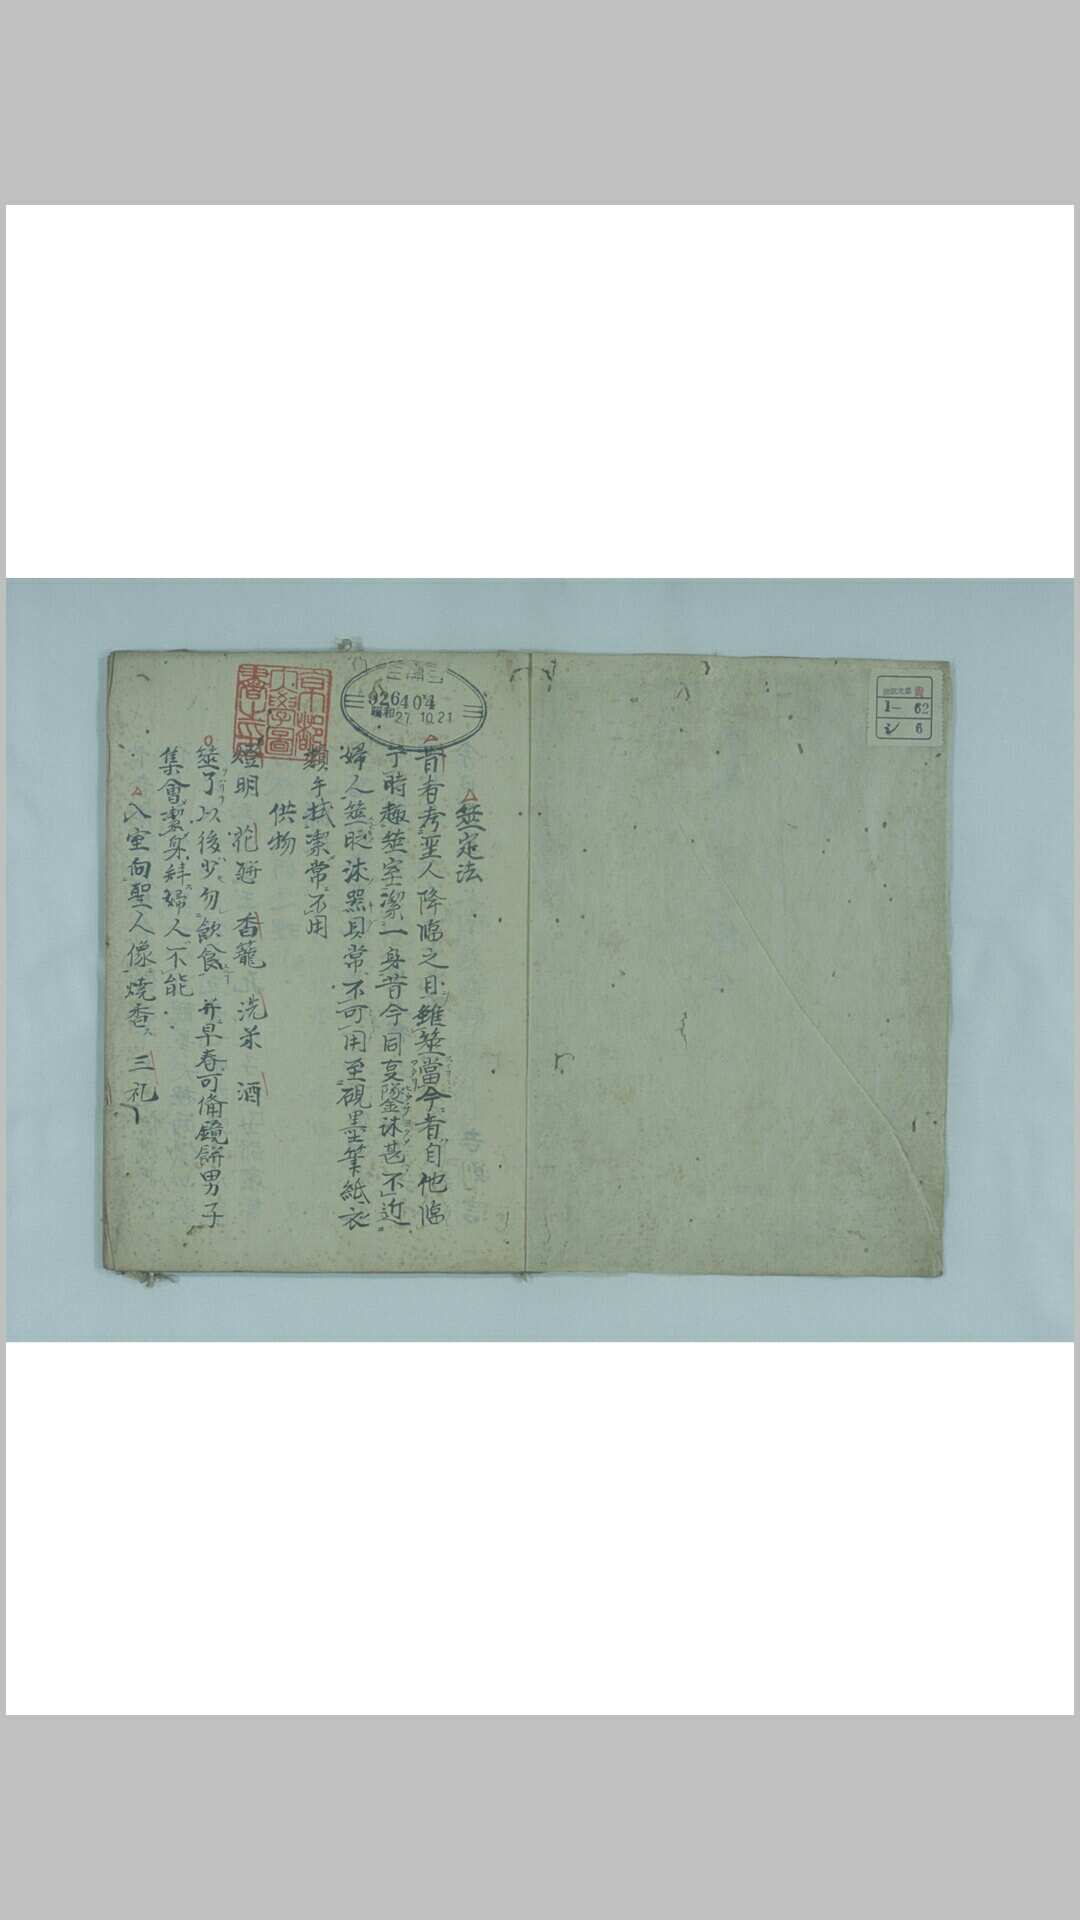 貴
1- 62
シ 6
筮定法
昔者考聖人降臨之且雖筮當今者自他臨
于時趣筮室潔一身昔今同 甚不近
婦人筮 沐器具常不可用至硯墨筆紙衣
類手拭潔常不用
供物
燈明 花 香籠 洗米 酒
筮了以後少勿飲食 并早春可備鏡餅男子
集會潔身 婦人不能
入室向聖人像燒香 三礼
三浦
926404
昭和27.10.21
京都
大學圖
書之印